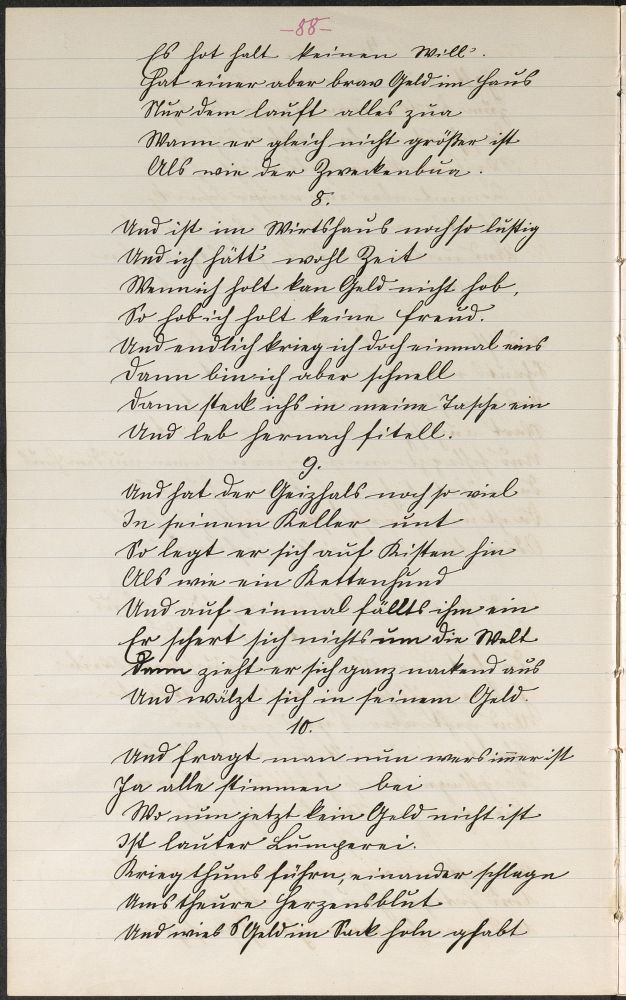 -88-
Es hat halt keinen Will.
Hat einer aber brav Geld im Haus
Nur dem lauft alles zua
Wann er gleich nicht größer ist
Als wie der Zweckenbua.
8.
Und ist im Wirtshaus noch so lustig
Und ich hätt' wohl Zeit
Wenn ich halt kan Geld nicht hab,
So hab ich halt keine Freud.
Und endlich krieg ich doch einmal eins
Dann bin ich aber schnell
Dann steck ichs in meine Tasche ein
Und leb hernach fitell.
9.
Und hat der Geizhals noch so viel
In seinem Keller unt
So legt er sich auf Kisten hin
Als wie ein Kettenhund
Und auf einmal fällts ihm ein
Er schert sich nichts um die Welt
Dann zieht er sich ganz nackend aus
Und wälzt sich in seinem Geld.
10.
Und fragt man nun wers immer ist
Ja alle stimmen bei
Wo nun jetzt kein Geld nicht ist
Ist lauter Lumperei.
Krieg thuns führn, einander schlagn
Ums theure Herzensblut
Und wies S Geld im Sack haln ghabt